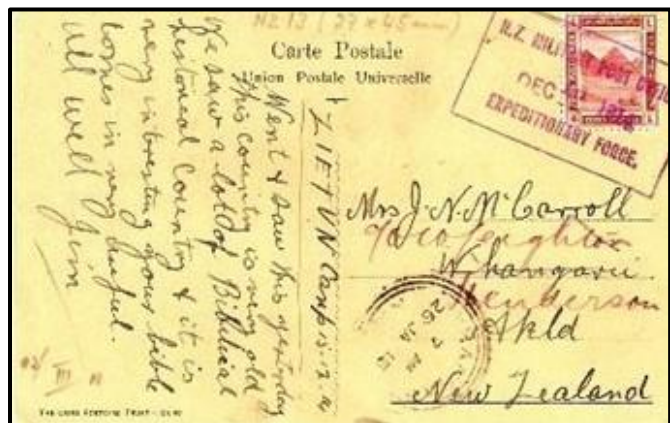 NZ 13 (27 x 45mm)
Carte Postale
Union Postale Universelle
N.Z. MILITARY POST OFFICE
DEC
EXPEDITIONARY FORCE.
ZIETUN Camp
Went & saw this yesterday
this country is very old
We saw a lot of Biblical
historical Country & it is
very interesting your bible
comes in very useful.
All well Jim
Mrs J. N. McCarroll
Whangarei
Henderson
Akld
New Zealand
7 AM
26 JA 15